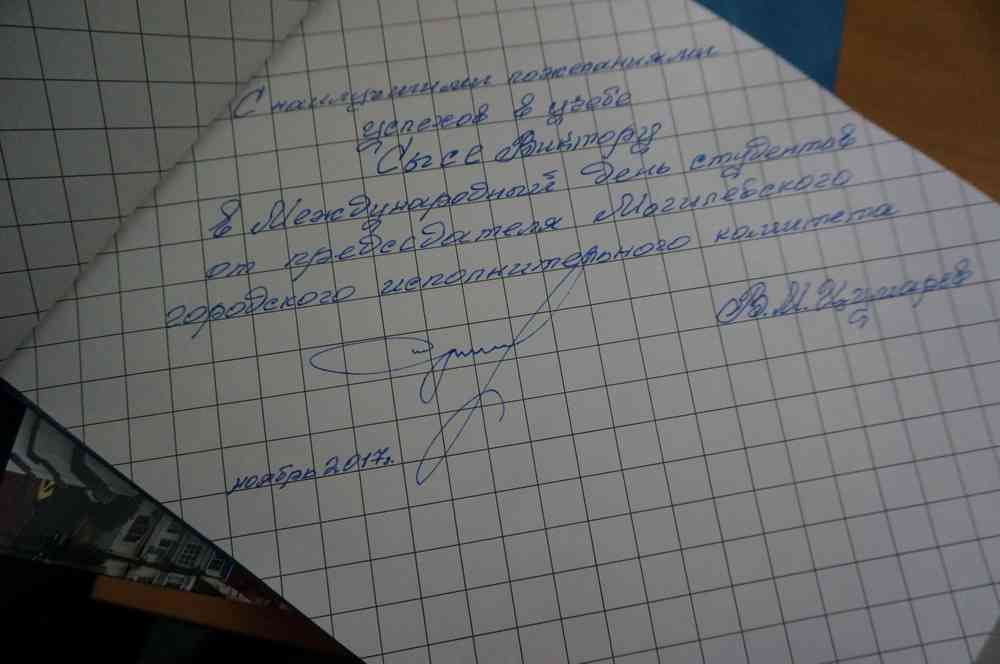 С наилучшими пожеланиями
успехов в учёбе
Сысе Виктору
в Международный день студентов
от председателя Могилёвского
городского исполнительного комитета
В.М. Цумарев
ноябрь 2017г.